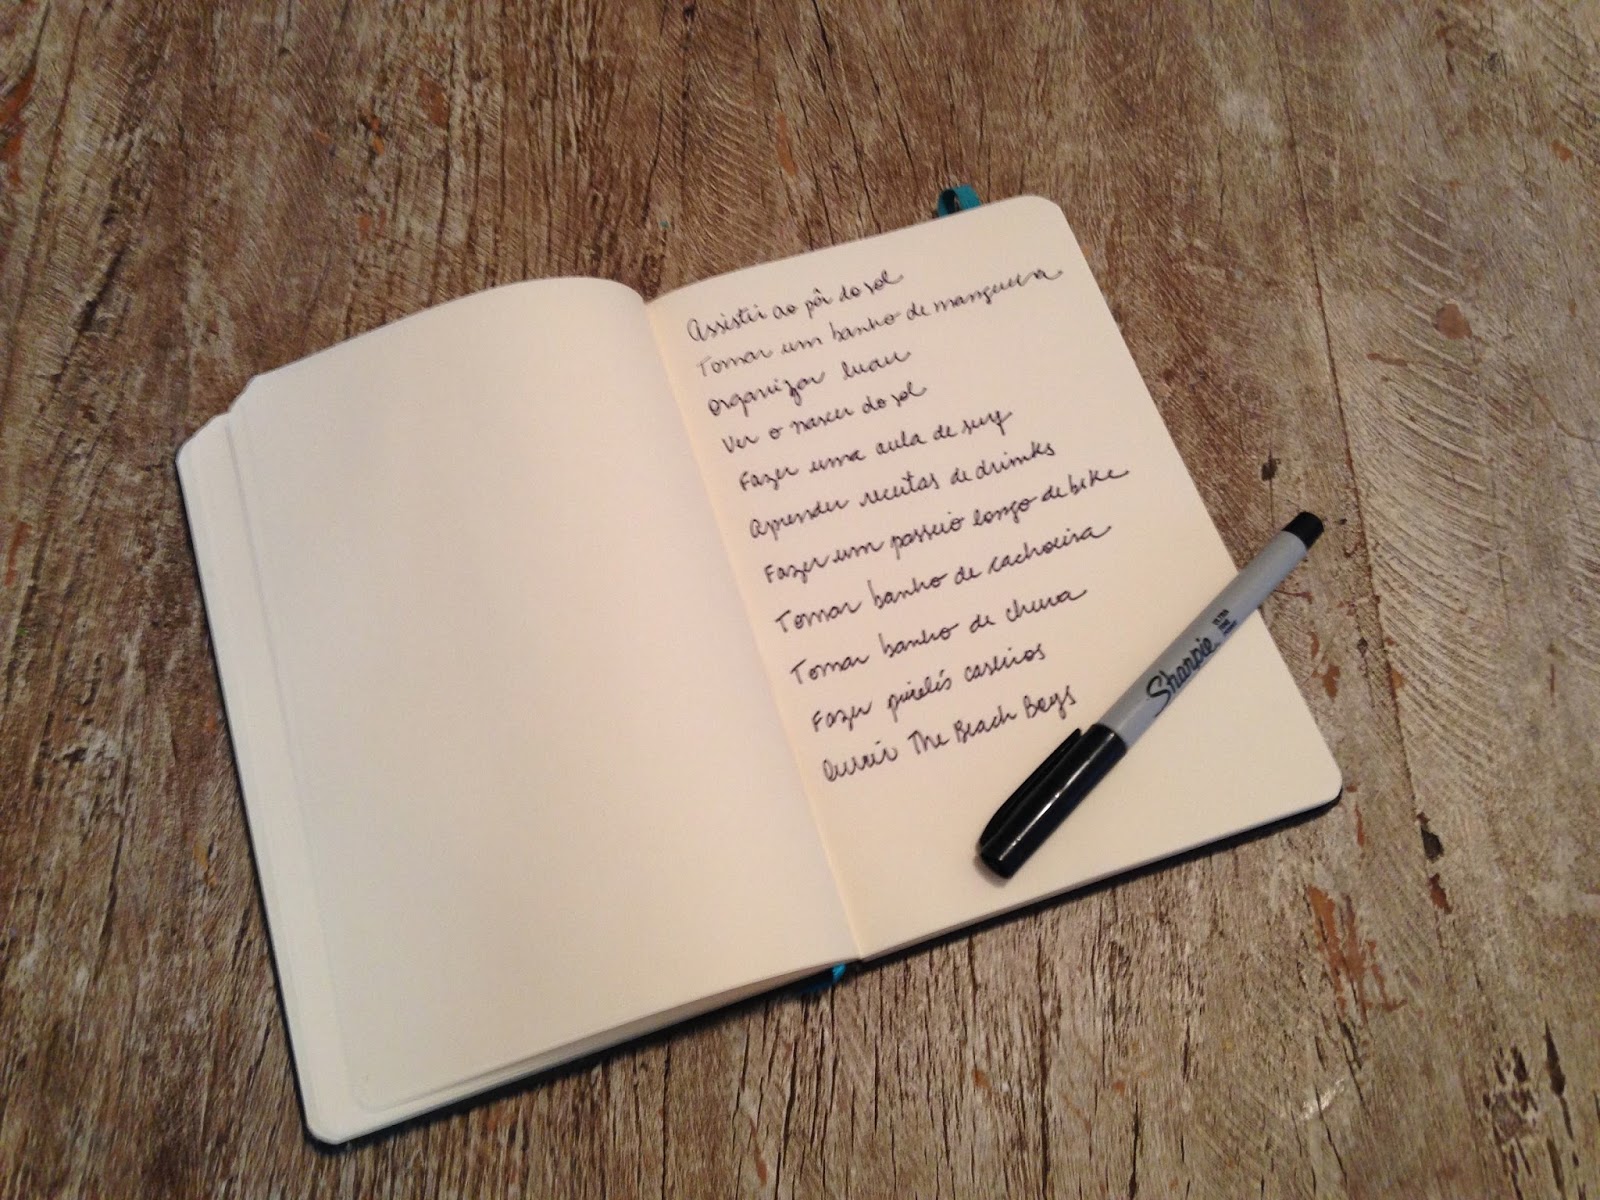 Assistir ao pôr do sol
Tomar um banho de mangueira
Organizar luau
Ver o nascer do sol
Fazer uma aula de surf
Aprender receitas de drinks
Fazer um passeio longo de bike
Tomar banho de cachoeira
Tomar banho de chuva
Fazer picolés caseiros
Ouvir The Beach Boys
Sharpie
ULTRA FINE POINT